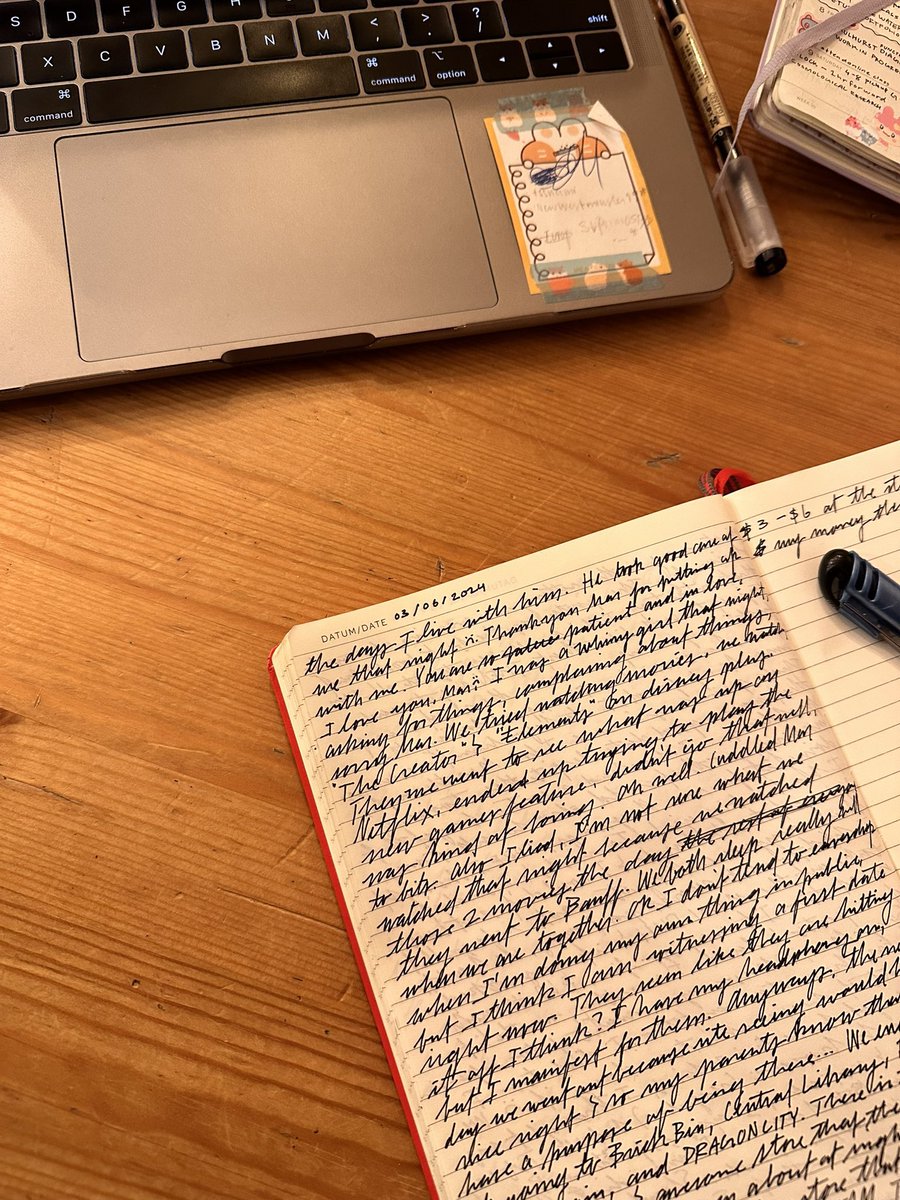 S D F G H
X C V B N M < , > . ? / shift
command command option
DATUM/DATE 03/06/2024
the days I live with him. He took good care of
me that night Thankyou Max for putting up
with me. You are patient and in love.
I love you, Max I was a whiny girl that night,
asking for things, complaining about things,
sorry Max. We tried watching movies, we watch
"The Creator" & "Elements" on disney plus.
Then we went to see what was up on
Netflix, ended up trying to play the
new games feature, didn't go that well,
was kind of boring. Oh well. Cuddled Max
to bits. also I lied, I'm not sure what we
watched that night because we watched
those 2 movies the day the rest of
they went to Banff. We both sleep really well
when we are together. Ok I don't tend to eavesdrop
when I'm doing my own thing in public,
but I think I am witnessing a first date
right now. They seem like they are hitting
it off I think? I have my headphones on,
but I manifest for them. Anyways, the
day we went out because site seeing would
nice right & so my parents know
have a purpose of being there... We
going to Brick Bin, Central Library,
and DRAGONCITY. There is
awesome store that
about at
store that
$3 - $6 at the
my money